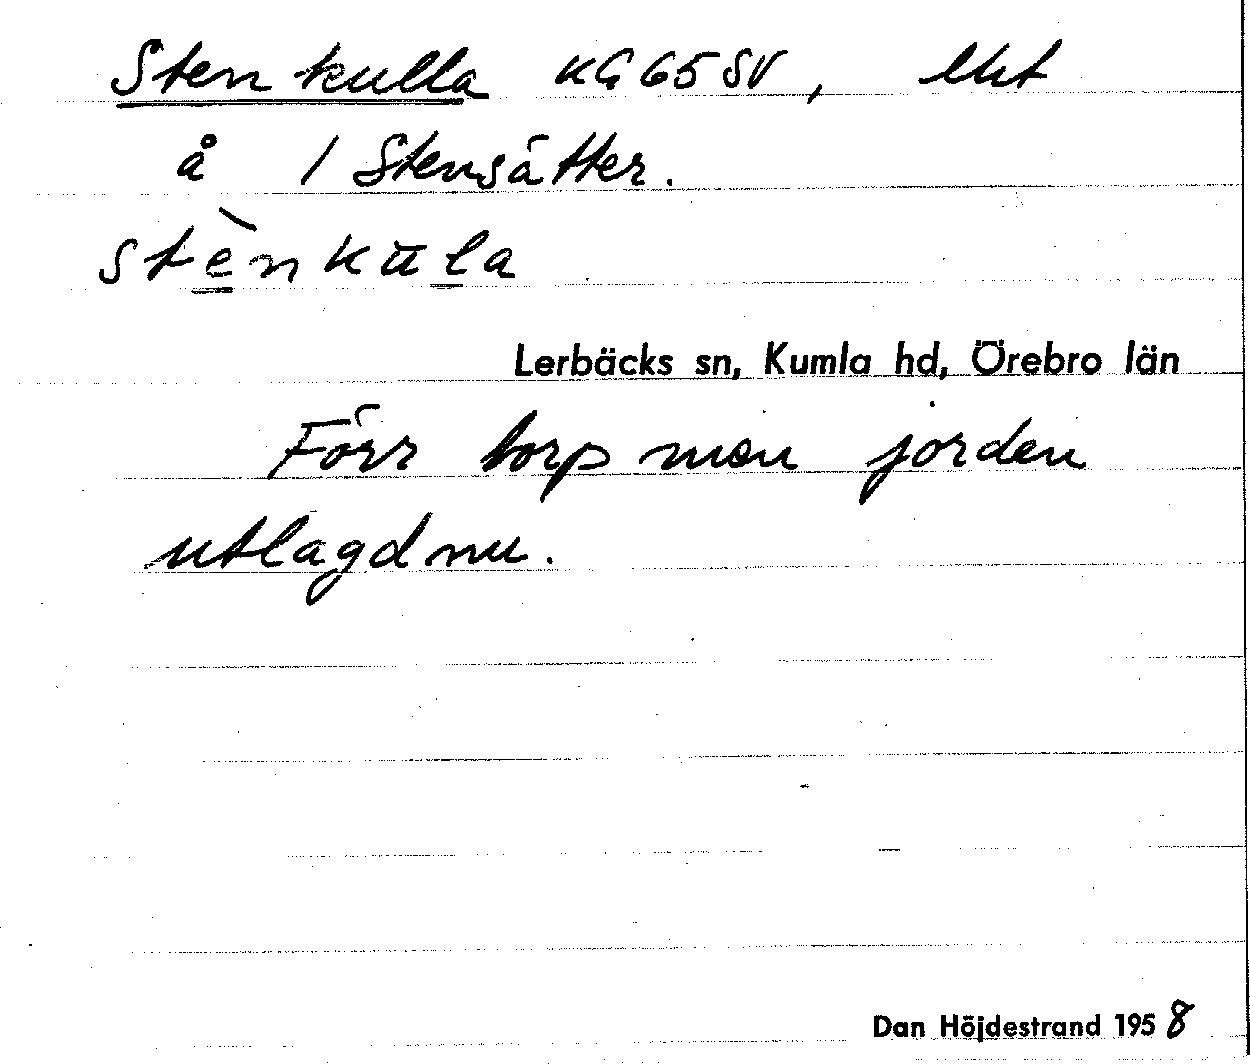 Stenkulla KG65SV, lht
å 1 Stensätter.
stènkūla
Lerbäcks sn, Kumla hd, Örebro län
Förr torp men jorden
utlagd nu.
Dan Höjdestrand 1958